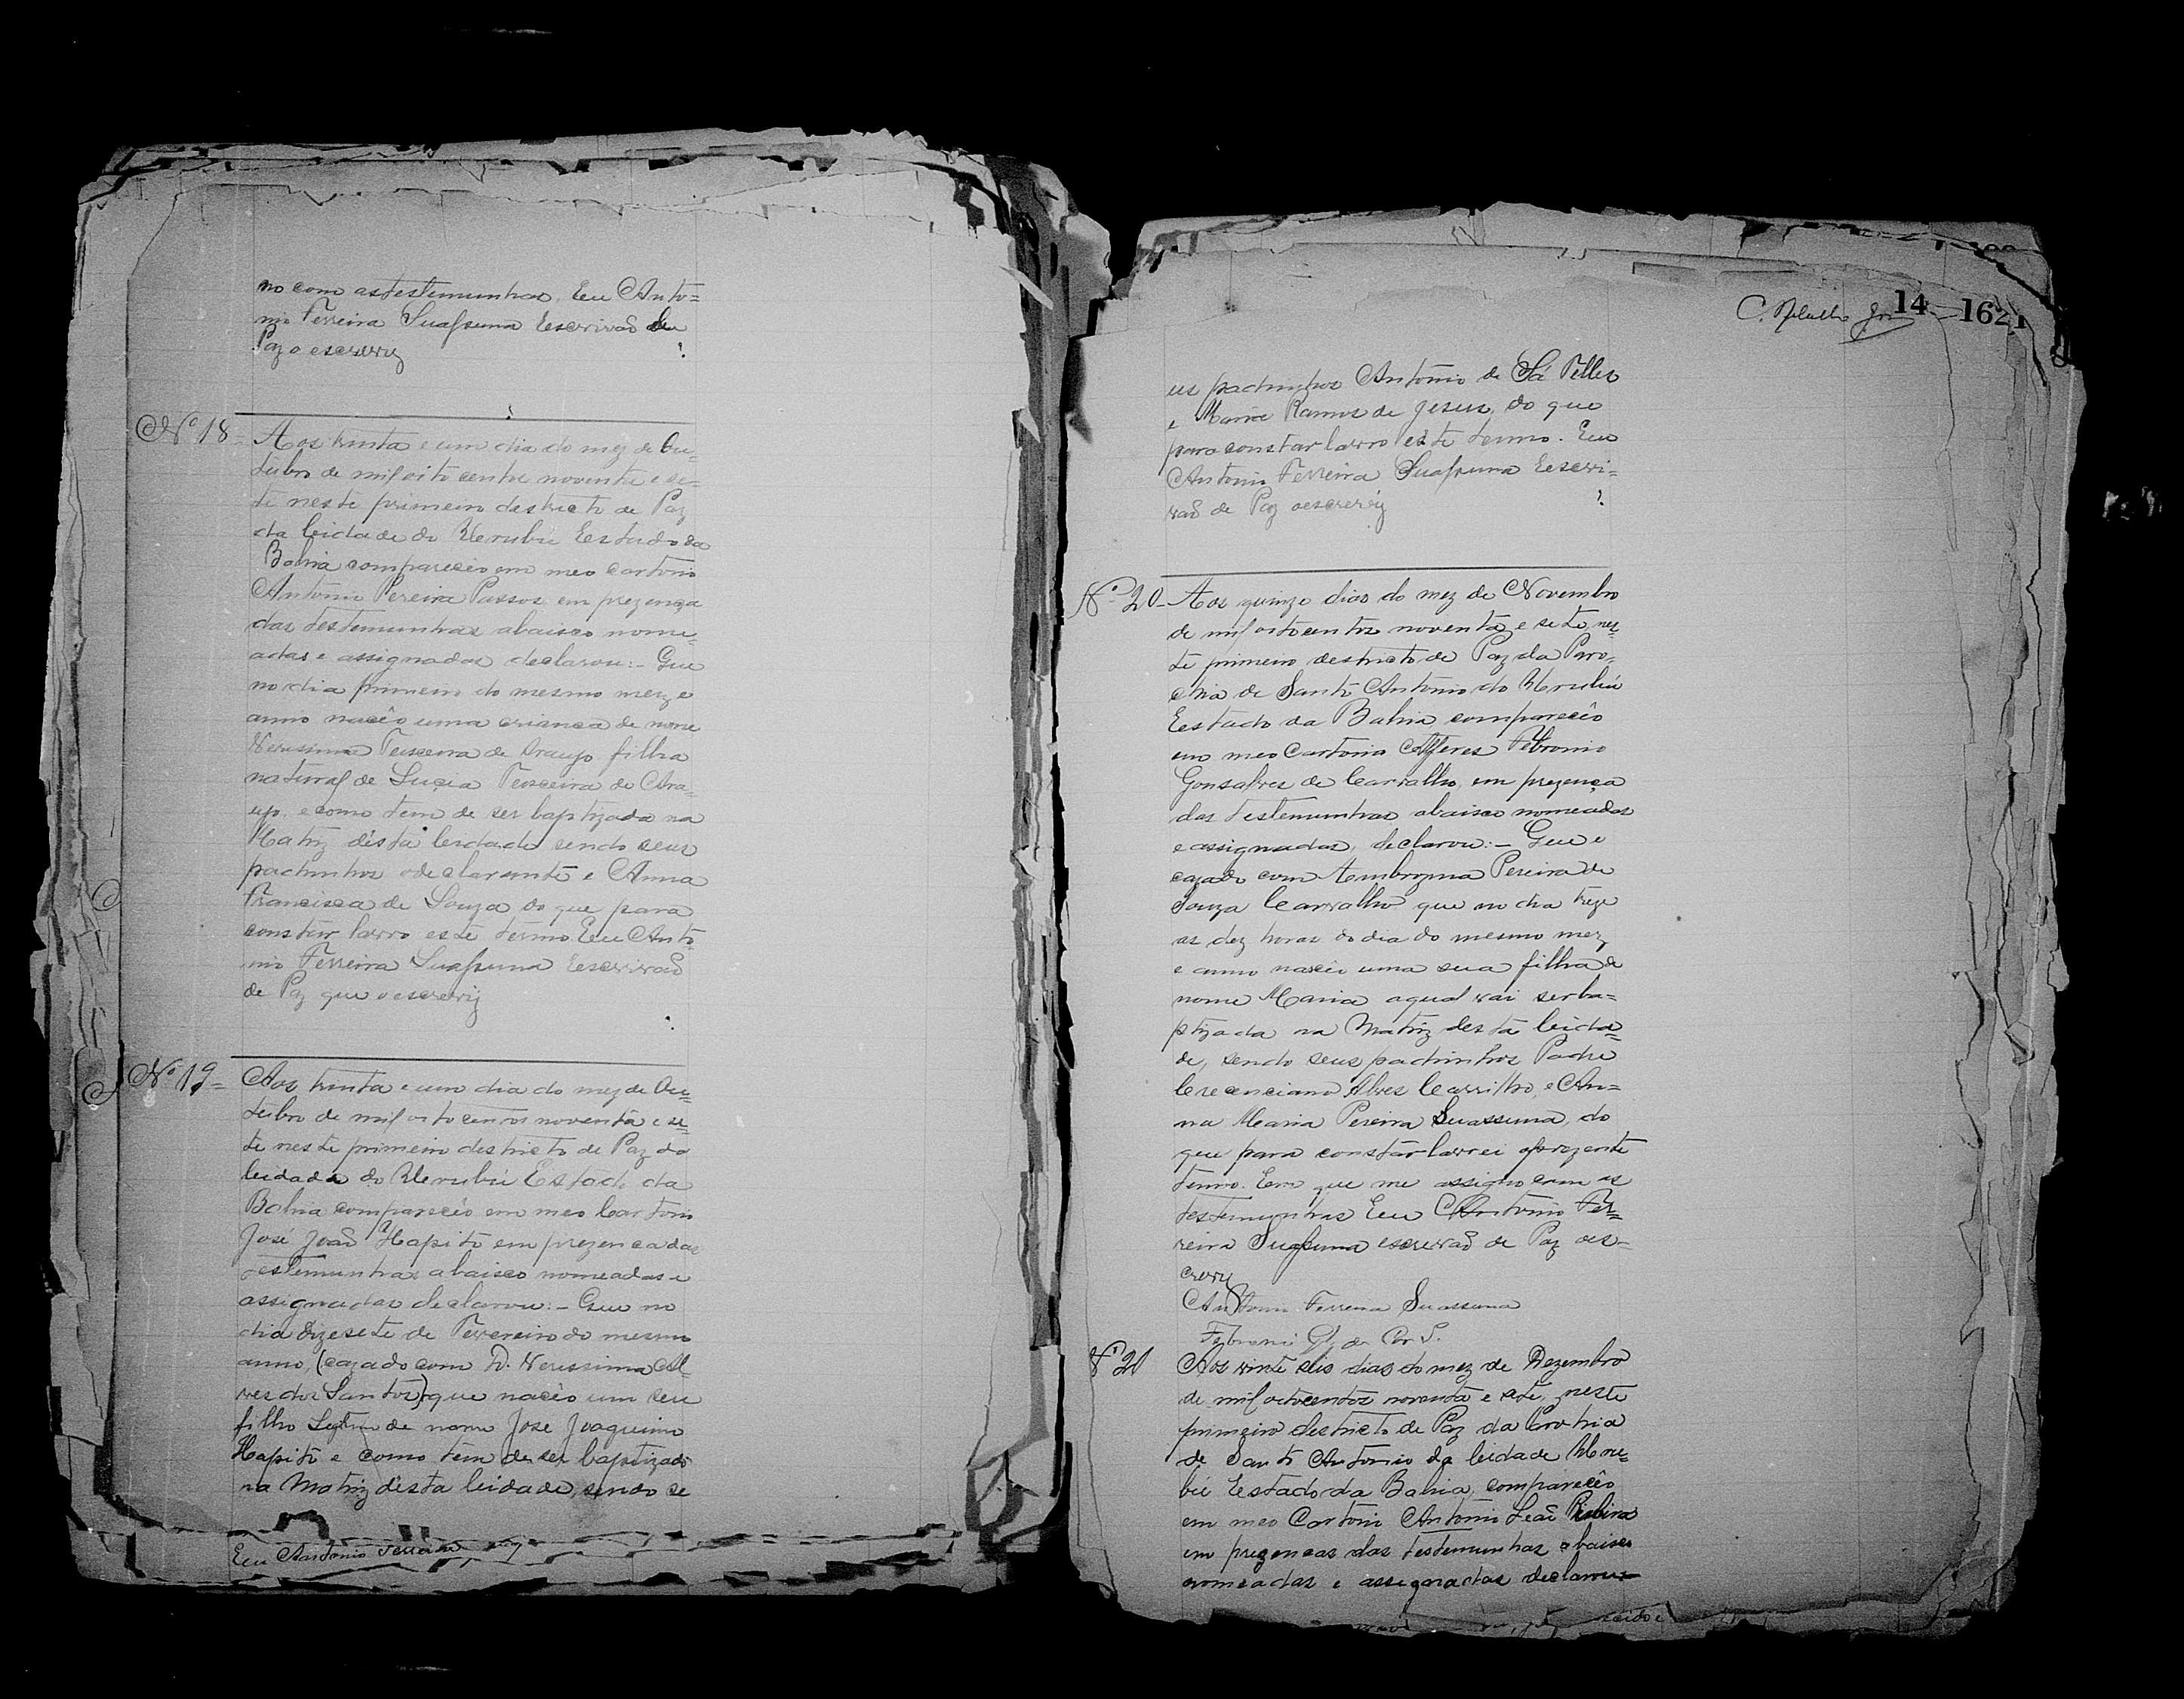 no com as testemunhas. Eu Anto=
nio Ferreira Suassuna Escrivaõ de
Paz o escrevy
Nº 18- Aos trinta e um dia do mez de Ou=
tubro de mil oito centos noventa e se=
te neste primeiro destricto de Paz
da Cidade do Urubú Estado da
Bahia compareceo em meo cartorio
Antonio Pereira Passos em prezença
das testemunhas abaixo nome=
adas e assignadas declarou:- Que
no dia primeiro do mesmo mez e
anno naceo uma criança de nome
Verissima Teixeira de Araujo filha
natural de Lucia Teixeira de Ara=
ujo, e como tem de ser baptizada na
Matriz désta Cidade sendo seus
padrinhos o declarante e Anna
Francisca de Souza do que para
constar lavro este termo. Eu Anto
nio Ferreira Suassuna Escrivaõ
de Paz que o escrevy
Nº 19= Aos trinta e um dia do mez de Ou=
tubro de mil oito centos noventa e se=
te neste primeiro destricto de Paz da
Cidade do Urubú Estado da
Bahia compareceo em meo Cartorio
José Joaõ Hapito em prezença das
testemunhas abaixo nomeadas e
assignadas declarou:- Que no
dia dizesete de Fevereiro do mesmo
anno, (cazado com D. Verissima Al=
ves dos Santos) que naceo um seu
filho de nome José Joaquim
Hapito e como tem de ser baptizado
na Matriz désta Cidade, sendo se
Eu Antonio Ferreira
14 1621
us padrinhos Antonio de Sá Telles
e Maria Ramos de Jesus, do que
para constar lavro este termo. Eu
Antonio Ferreira Suassuna Escri=
vaõ de Paz o escrevy
Nº 20- Aos quinze dias do mez de Novembro
de mil oitocentos noventa e sete, nes=
te primeiro destricto de Paz da Paro=
chia de Santo Antonio do Urubú
Estado da Bahia, compareceo
em meo Cartorio Alferes Petronio
Gonsalves de Carvalho, em prezença
das testemunhas abaixo nomeadas
e assignadas, declarou:- Que e
cazado com Ambrozina Pereira de
Souza Carvalho que no dia treze
as dez horas do dia do mesmo mez
e anno naceo uma sua filha de
nome Maria aqual vai ser ba=
ptizada na Matriz desta Cida=
de, sendo seus padrinhos Padre
Crecenciano Alves Carrilho, e An=
na Maria Pereira Suassuna, do
que para constar lavrei o prezente
termo. Em que me assigno com as
testemunhas Eu Antonio Fer=
reira Suassuna escrivaõ de Paz oes=
crevy
Antonio Ferreira Suassuna
Nº 21 Aos vinte seis dias do mez de Dezembro
de mil oitocentos noventa e sete, neste
primeiro destricto de Paz da Parochia
de Santo Antonio da Cidade Uru=
bú Estado da Bahia, compareceo
em meo Cartorio Antonio Leaõ Ribeiro
em prezencas das testemunhas abaixo
nomeadas e assignadas declarou=